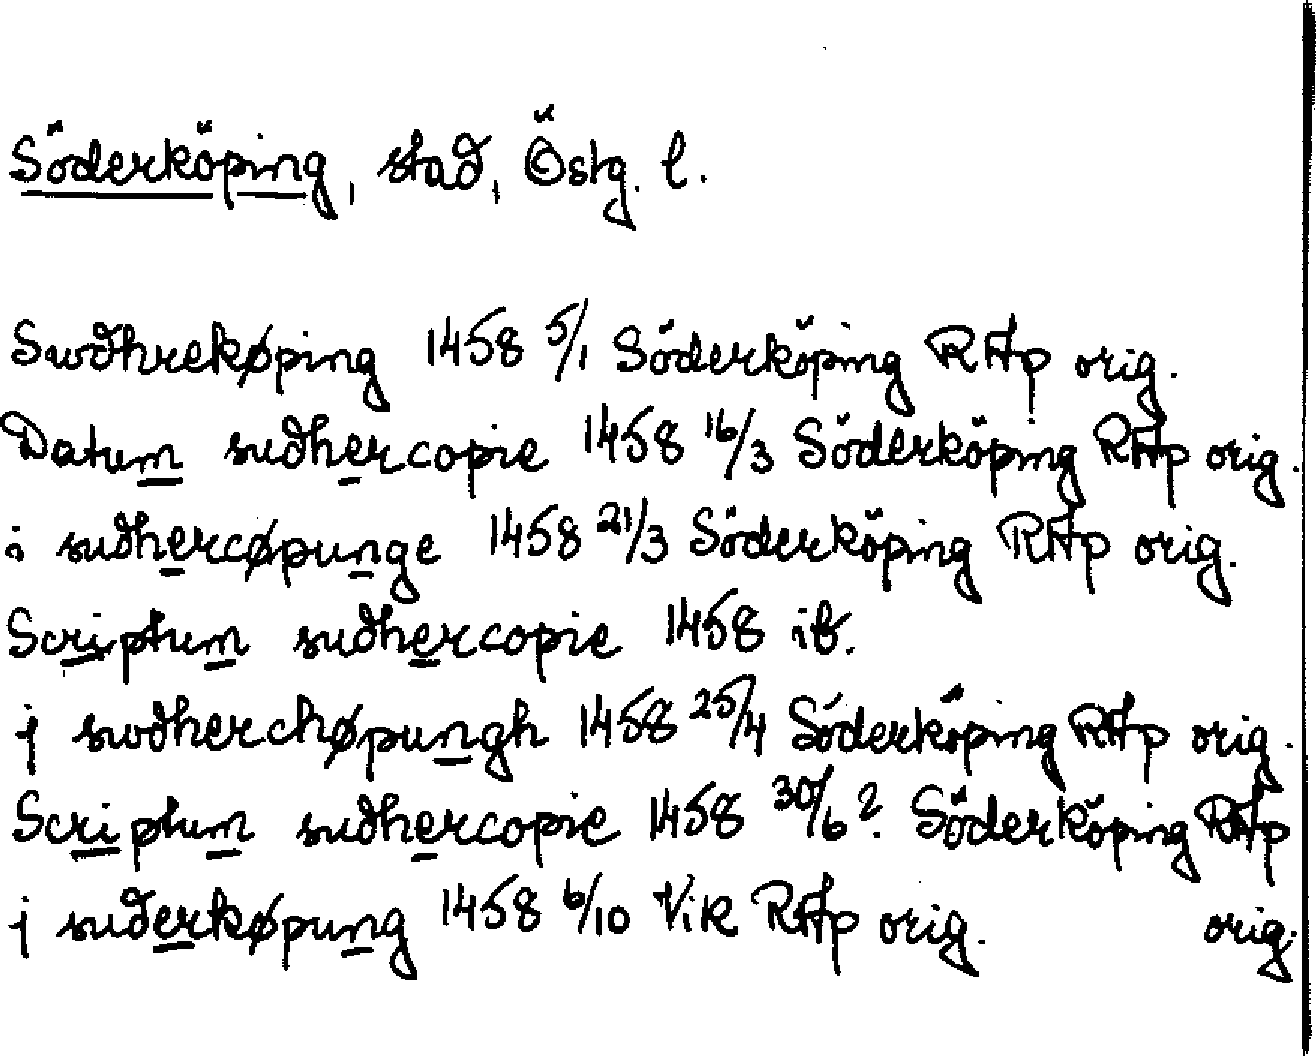 Söderköping, stad, Östg. l.
Swdhrekøping 1458 5/1 Söderköping RAp orig.
Datum sudhercopie 1458 16/3 Söderköping RAp orig.
i sudhercøpunge 1458 21/3 Söderköping RAp orig.
Scriptum sudhercopie 1458 ib.
j swdherchøpungh 1458 25/4 Söderköping RAp orig.
Scriptum sudhercopie 1458 30/6? Söderköping RAp
j suderkøpung 1458 6/10 Vik RAp orig. orig.